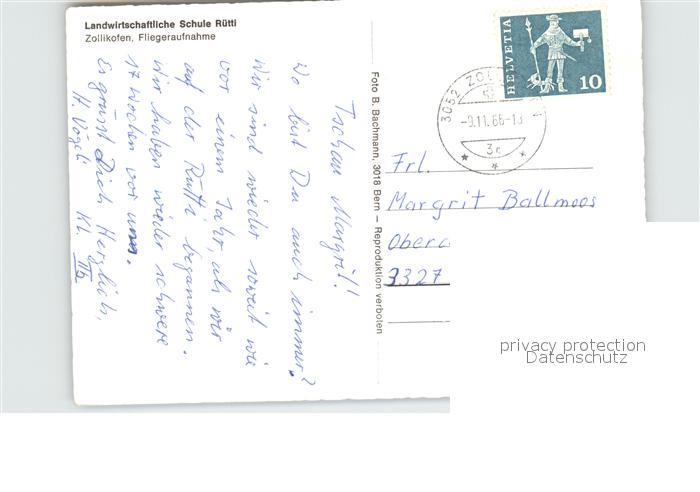 Landwirtschaftliche Schule Rütti
Zollikofen, Fliegeraufnahme
Tschau Margrit!
Wo bist Du auch immer?
Wir sind wieder soweit wie
vor einem Jahr, als wir
auf der Rütti begannen.
Wir haben wieder schwere
17 Wochen vor uns.
Es grüsst Dich Herzlich,
H. Vögeli Kl. IIb
Foto B. Bachmann, 3018 Bern — Reproduktion verboten
HELVETIA
10
3052 ZOL
-9.11.66-13
3c
Frl.
Margrit Ballmoos
Ober
3327
privacy protection
Datenschutz